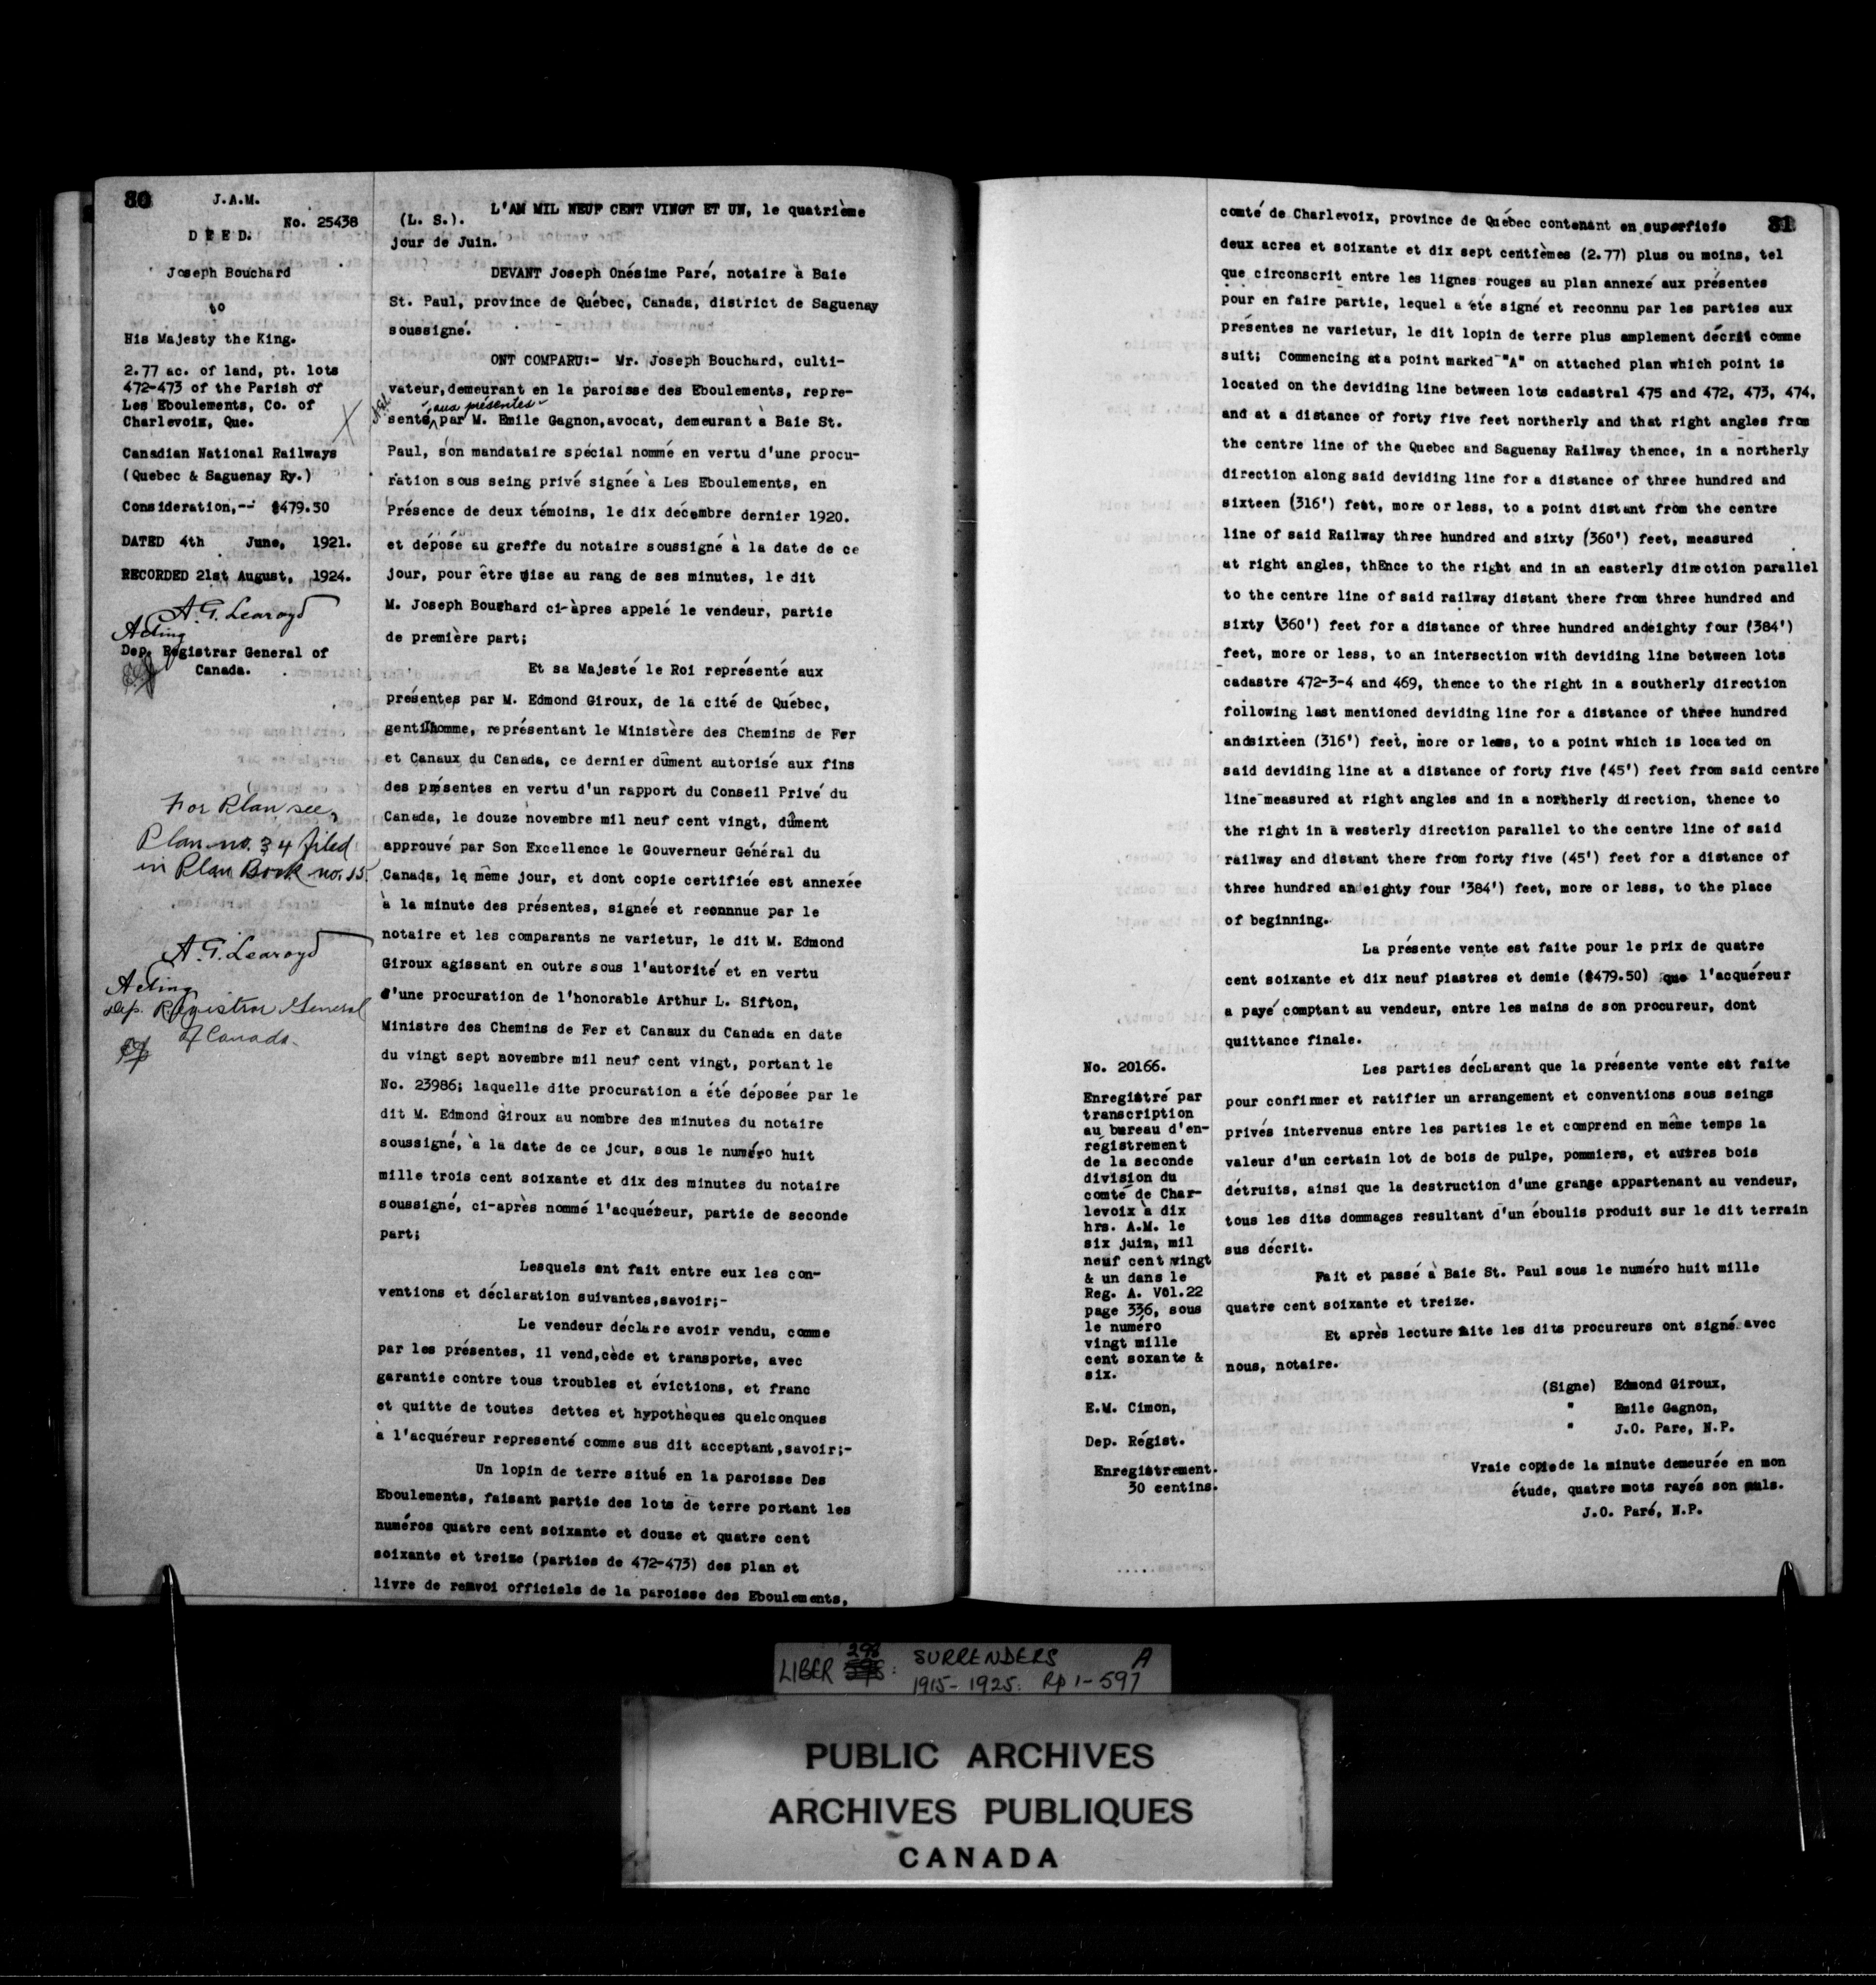 80
J.A.M.
No. 25438
D E E D.
Joseph Bouchard
to
His Majesty the King.
2.77 ac. of land, pt. lots
472-473 of the Parish of
Les Eboulements, Co. of
Charlevoix, Que.
Canadian National Railways
(Quebec & Saguenay Ry.)
Consideration,-- $479.50
DATED 4th June, 1921.
RECORDED 21st August, 1924.
A. G. Learoyd
Acting
Dep. Registrar General of
Canada.
For Plan see
Plan no. 34 filed
in Plan Book no. 15.
A. G. Learoyd
Acting
Dep. Registrar General
of Canada.
L'AN MIL NEUF CENT VINGT ET UN, le quatrième
(L. S.).
jour de Juin.
DEVANT Joseph Onésime Paré, notaire à Baie
St. Paul, province de Québec, Canada, district de Saguenay
soussigné.
ONT COMPARU:- Mr. Joseph Bouchard, culti-
vateur,demeurant en la paroisse des Eboulements, repre-
aux présentes
senté par M. Emile Gagnon,avocat, demeurant à Baie St.
Paul, son mandataire spécial nommé en vertu d'une procu-
ration sous seing privé signée à Les Eboulements, en
Présence de deux témoins, le dix décembre dernier 1920.
et déposé au greffe du notaire soussigné à la date de ce
jour, pour être mise au rang de ses minutes, le dit
M. Joseph Bouchard ci-àpres appelé le vendeur, partie
de première part;
Et sa Majesté le Roi représenté aux
présentes par M. Edmond Giroux, de la cité de Québec,
gentilhomme, représentant le Ministère des Chemins de Fer
et Canaux du Canada, ce dernier dûment autorisé aux fins
des présentes en vertu d'un rapport du Conseil Privé du
Canada, le douze novembre mil neuf cent vingt, dûment
approuvé par Son Excellence le Gouverneur Général du
Canada, le même jour, et dont copie certifiée est annexée
à la minute des présentes, signée et reonnnue par le
notaire et les comparants ne varietur, le dit M. Edmond
Giroux agissant en outre sous l'autorité et en vertu
d'une procuration de l'honorable Arthur L. Sifton,
Ministre des Chemins de Fer et Canaux du Canada en date
du vingt sept novembre mil neuf cent vingt, portant le
No. 23986; laquelle dite procuration a été déposée par le
dit M. Edmond Giroux au nombre des minutes du notaire
soussigné, à la date de ce jour, sous le numéro huit
mille trois cent soixante et dix des minutes du notaire
soussigné, ci-après nommé l'acquéreur, partie de seconde
part;
Lesquels ont fait entre eux les con-
ventions et déclaration suivantes,savoir;-
Le vendeur déclare avoir vendu, comme
par les présentes, il vend,cède et transporte, avec
garantie contre tous troubles et évictions, et franc
et quitte de toutes dettes et hypothèques quelconques
à l'acquéreur representé comme sus dit acceptant,savoir;-
Un lopin de terre situé en la paroisse Des
Eboulements, faisant partie des lots de terre portant les
numéros quatre cent soixante et douze et quatre cent
soixante et treize (parties de 472-473) des plan et
livre de renvoi officiels de la paroisse des Eboulements,
81
comté de Charlevoix, province de Québec contenant en superficie
deux acres et soixante et dix sept centièmes (2.77) plus ou moins, tel
que circonscrit entre les lignes rouges au plan annexé aux présentes
pour en faire partie, lequel a été signé et reconnu par les parties aux
présentes ne varietur, le dit lopin de terre plus amplement décrit comme
suit; Commencing at a point marked "A" on attached plan which point is
located on the deviding line between lots cadastral 475 and 472, 473, 474,
and at a distance of forty five feet northerly and that right angles from
the centre line of the Quebec and Saguenay Railway thence, in a northerly
direction along said deviding line for a distance of three hundred and
sixteen (316') feet, more or less, to a point distant from the centre
line of said Railway three hundred and sixty (360') feet, measured
at right angles, thEnce to the right and in an easterly direction parallel
to the centre line of said railway distant there from three hundred and
sixty (360') feet for a distance of three hundred andeighty four (384')
feet, more or less, to an intersection with deviding line between lots
cadastre 472-3-4 and 469, thence to the right in a southerly direction
following last mentioned deviding line for a distance of three hundred
andsixteen (316') feet, more or less, to a point which is located on
said deviding line at a distance of forty five (45') feet from said centre
line measured at right angles and in a northerly direction, thence to
the right in a westerly direction parallel to the centre line of said
railway and distant there from forty five (45') feet for a distance of
three hundred and eighty four '384') feet, more or less, to the place
of beginning.
La présente vente est faite pour le prix de quatre
cent soixante et dix neuf piastres et demie ($479.50) que l'acquéreur
a payé comptant au vendeur, entre les mains de son procureur, dont
quittance finale.
Les parties décLarent que la présente vente est faite
pour confirmer et ratifier un arrangement et conventions sous seings
privés intervenus entre les parties le et comprend en même temps la
valeur d'un certain lot de bois de pulpe, pommiers, et autres bois
détruits, ainsi que la destruction d'une grange appartenant au vendeur,
tous les dits dommages resultant d'un éboulis produit sur le dit terrain
sus décrit.
Fait et passé à Baie St. Paul sous le numéro huit mille
quatre cent soixante et treize.
Et après lecture faite les dits procureurs ont signé avec
nous, notaire.
(Signe) Edmond Giroux,
" Emile Gagnon,
" J.O. Pare, N.P.
Vraie copie de la minute demeurée en mon
étude, quatre mots rayés son nuls.
J.O. Paré, N.P.
No. 20166.
Enregistré par
transcription
au bureau d'en-
régistrement
de la seconde
division du
comté de Char-
levoix à dix
hrs. A.M. le
six juin, mil
neuf cent vingt
& un dans le
Reg. A. Vol.22
page 336, sous
le numéro
vingt mille
cent soxante &
six.
E.M. Cimon,
Dep. Régist.
Enregistrement.
30 centins.
LIBER 298: SURRENDERS A
1915-1925: Rp 1-597
PUBLIC ARCHIVES
ARCHIVES PUBLIQUES
CANADA